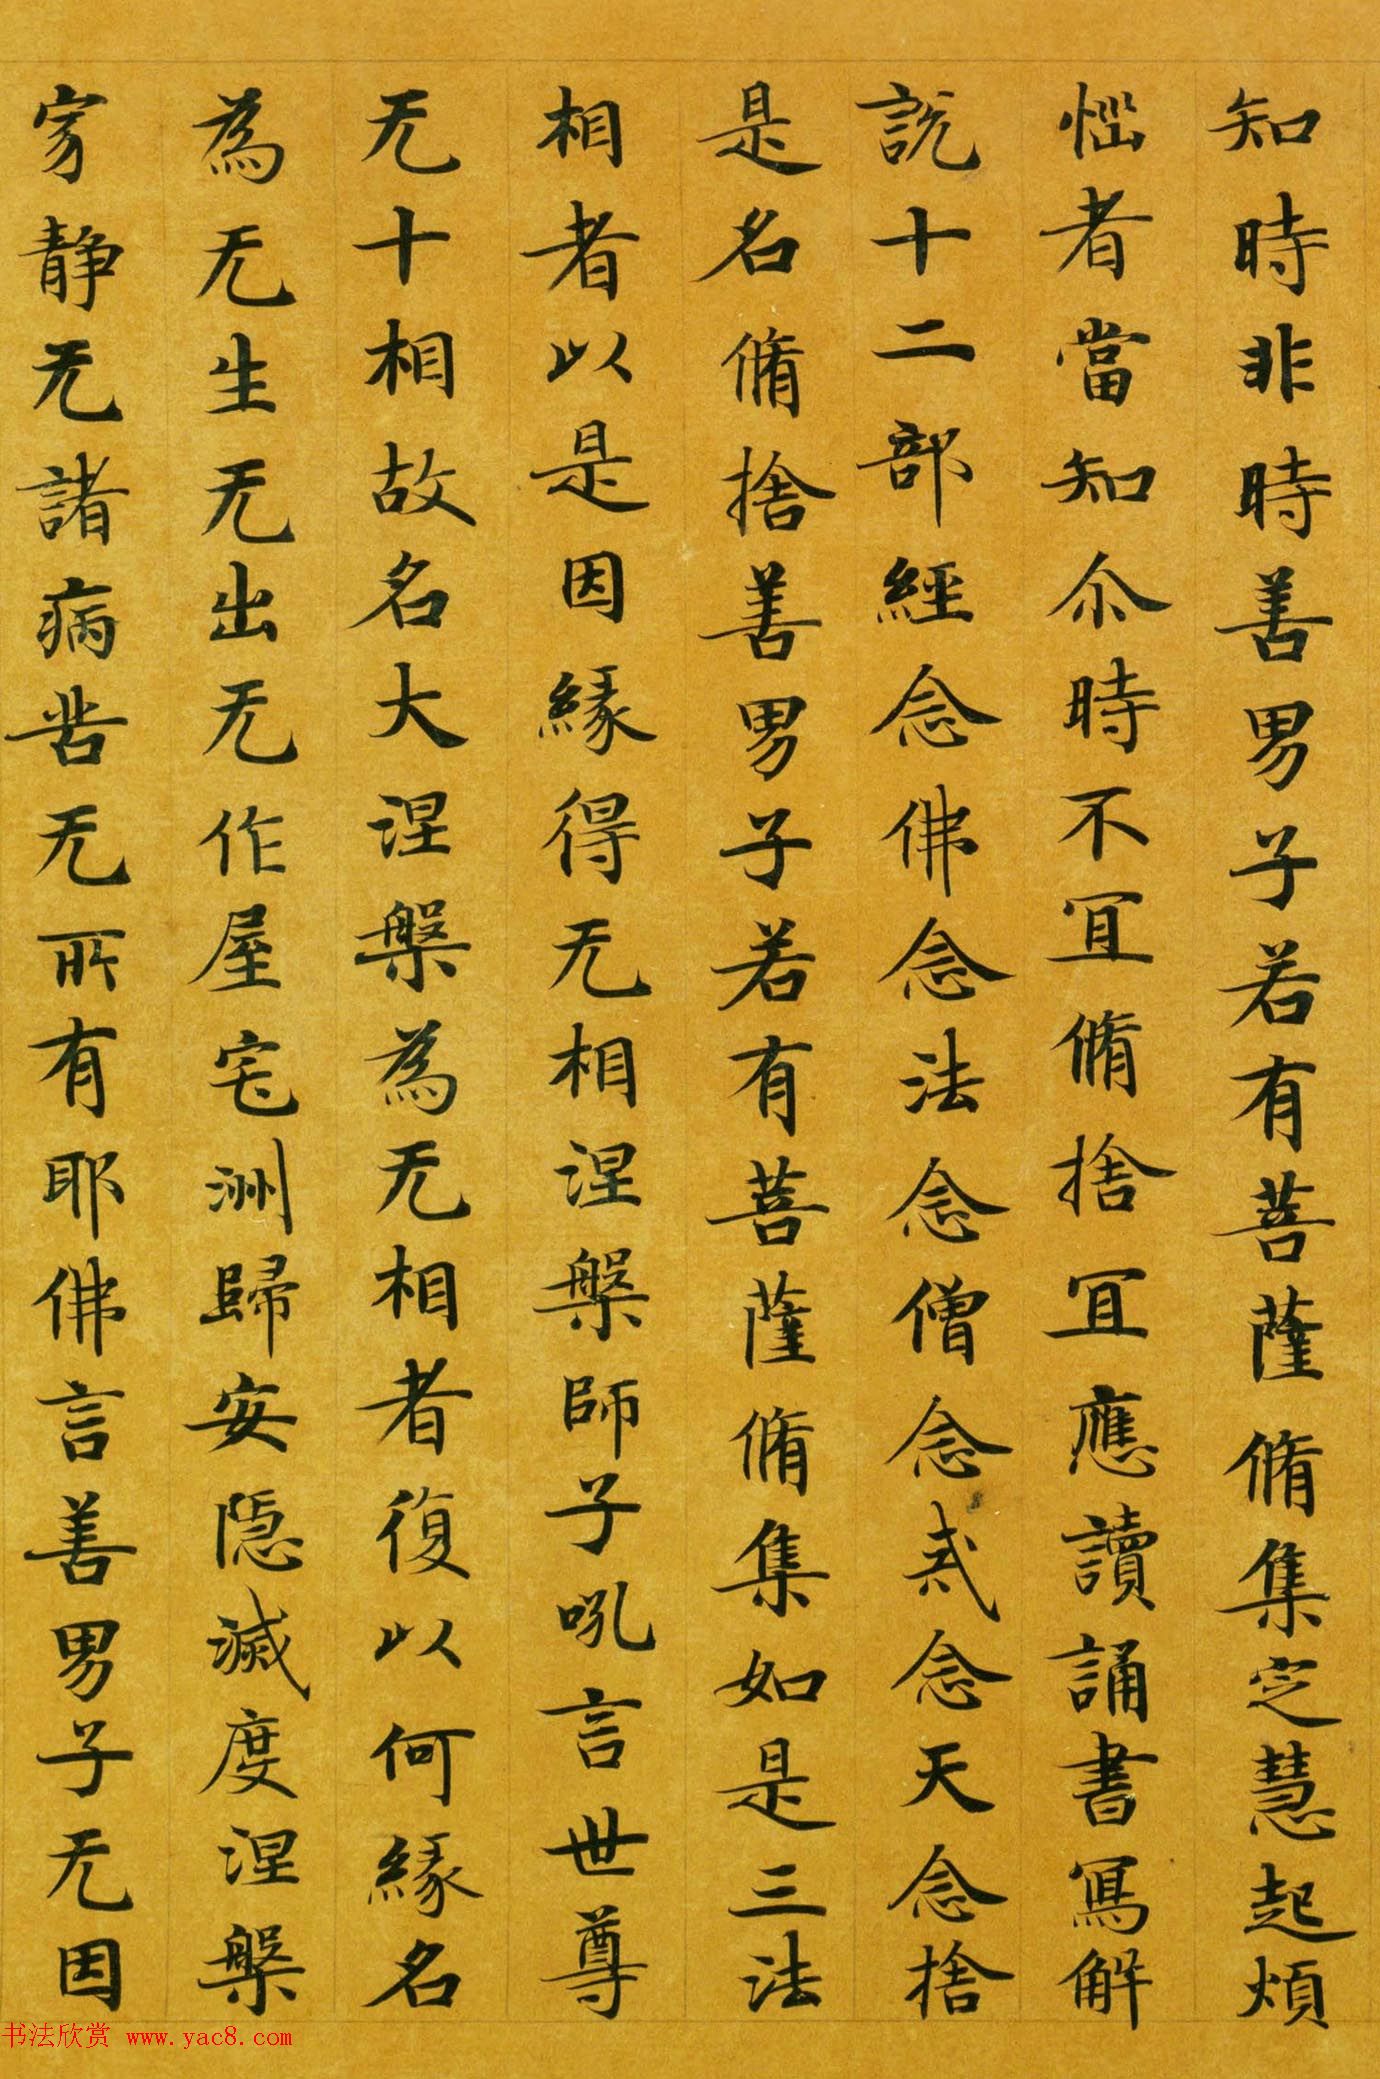 知時非時善男子若有菩薩脩集定慧起煩
惱者當知尒時不冝脩捨冝應讀誦書寫解
說十二部經念佛念法念僧念戒念天念捨
是名脩捨善男子若有菩薩脩集如是三法
相者以是因緣得无相涅槃師子吼言世尊
无十相故名大涅槃為无相者復以何緣名
為无生无出无作屋宅洲歸安隱滅度涅槃
寂靜无諸病苦无所有耶佛言善男子无因
书法欣赏 www.yac8.com